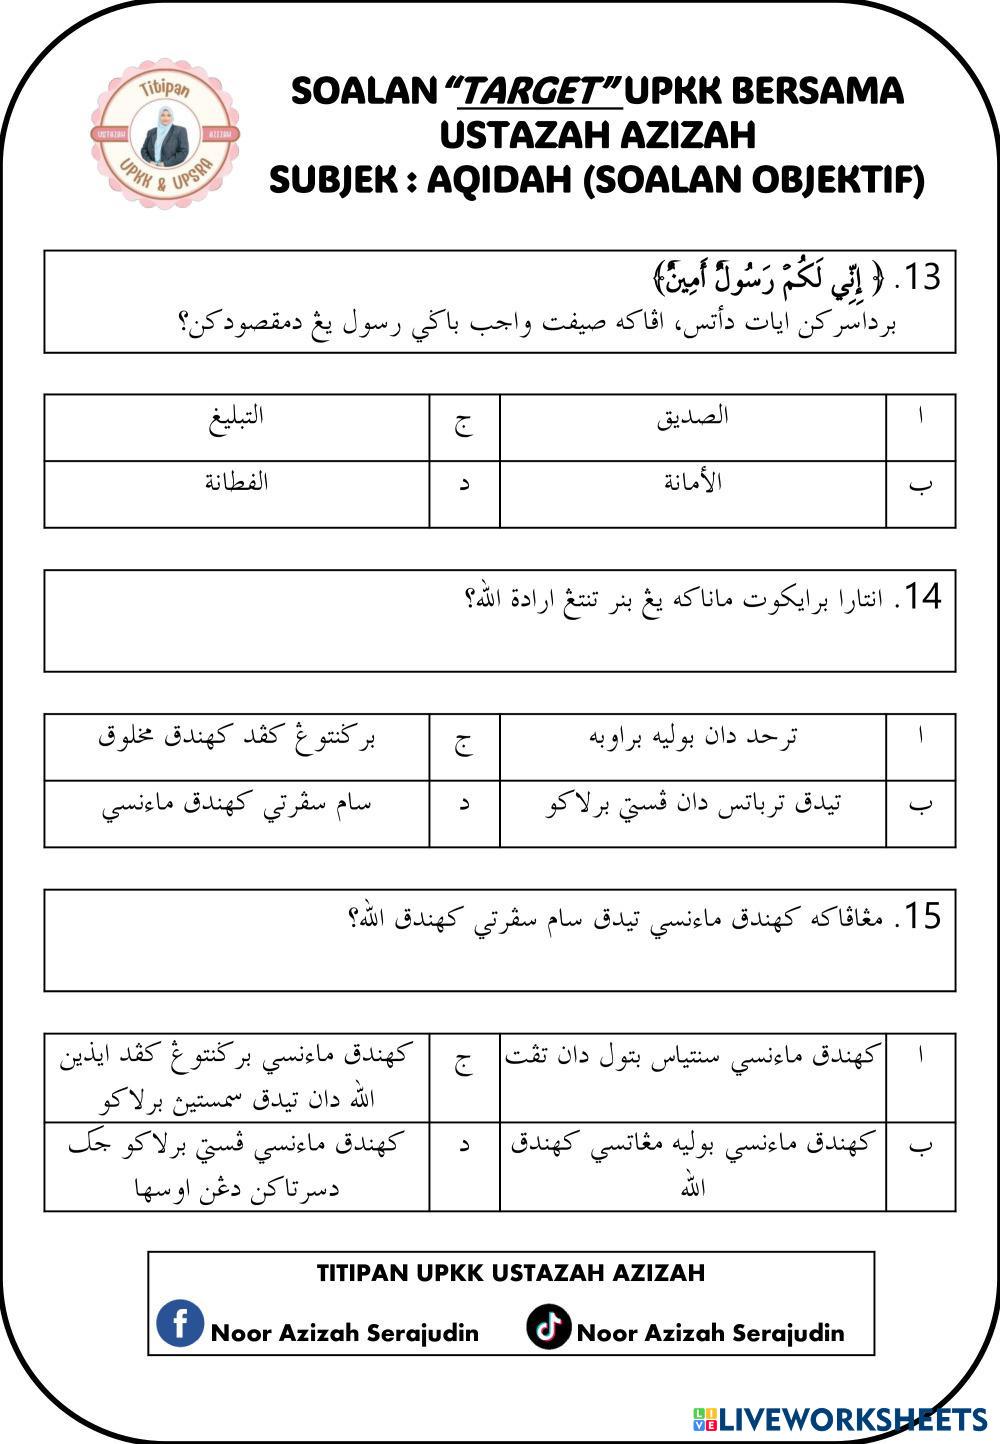 Titipan
USTAZAH AZIZAH
UPKK & UPSRA
SOALAN “TARGET” UPKK BERSAMA
USTAZAH AZIZAH
SUBJEK : AQIDAH (SOALAN OBJEKTIF)
13. ﴿ إِنِّي لَكُمْ رَسُولٌ أَمِينٌ﴾
برداسركن ايات دأتس، اڤاكه صيفت واجب باݢي رسول يڠ دمقصودكن؟
ا الصديق ج التبليغ
ب الأمانة د الفطانة
14. انتارا برايكوت ماناكه يڠ بنر تنتڠ ارادة الله؟
ا ترحد دان بوليه براوبه ج برݢنتوڠ كڤد كهندق مخلوق
ب تيدق ترباتس دان ڤستي برلاكو د سام سڤرتي كهندق ماءنسي
15. مڠاڤاكه كهندق ماءنسي تيدق سام سڤرتي كهندق الله؟
ا كهندق ماءنسي سنتياس بتول دان تڤت ج كهندق ماءنسي برݢنتوڠ كڤد ايذين
الله دان تيدق سمستيڽ برلاكو
ب كهندق ماءنسي بوليه مڠاتسي كهندق د كهندق ماءنسي ڤستي برلاكو جك
الله دسرتاكن دڠن اوسها
TITIPAN UPKK USTAZAH AZIZAH
Noor Azizah Serajudin Noor Azizah Serajudin
LIVE LIVEWORKSHEETS